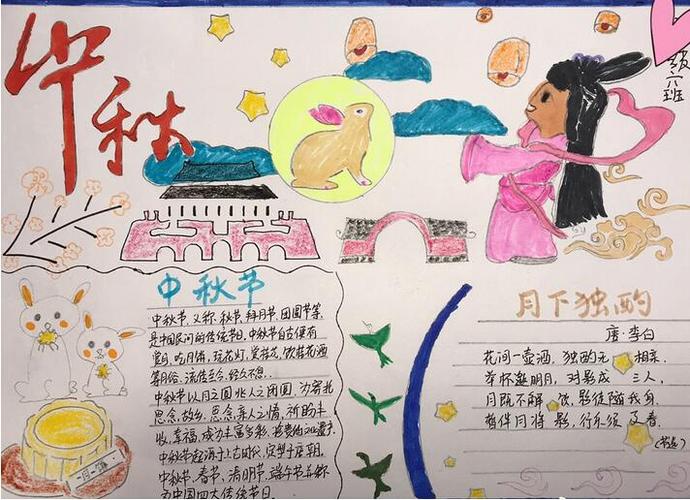 中秋
级六班
中秋节
中秋节,又称秋节、拜月节、团圆节等,
是中国民间的传统节日。中秋节自古便有
赏月、吃月饼、玩花灯、赏桂花、饮桂花酒
等月俗,流传至今,经久不息。
中秋节以月之圆兆人之团圆,为寄托
思念故乡,思念亲人之情,祈盼丰
收、幸福,成为丰富多彩、
中秋节起源于上古时代,定型于
中秋节、春节、清明节、端午节并称
为中国四大传统节日。
月下独酌
唐·李白
花间一壶酒,独酌无相亲。
举杯邀明月,对影成三人。
月既不解饮,影徒随我身。
暂伴月将影,行乐须及春。